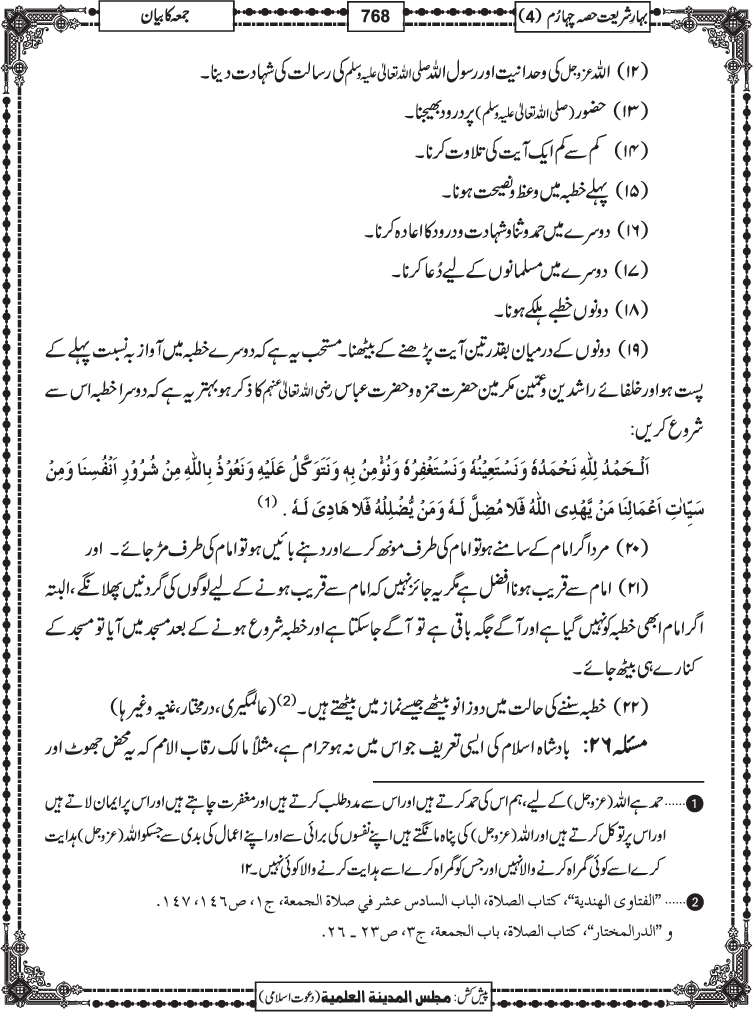 بہارِشریعت حصہ چہارُم (4)
768
جمعہ کا بیان
(۱۲) اللہ عزوجل کی وحدانیت اور رسول اللہ صلی اللہ تعالٰی علیہ وسلم کی رسالت کی شہادت دینا۔
(۱۳) حضور (صلی اللہ تعالٰی علیہ وسلم) پر درود بھیجنا۔
(۱۴) کم سے کم ایک آیت کی تلاوت کرنا۔
(۱۵) پہلے خطبہ میں وعظ و نصیحت ہونا۔
(۱۶) دوسرے میں حمد و ثنا و شہادت و درود کا اعادہ کرنا۔
(۱۷) دوسرے میں مسلمانوں کے لیے دُعا کرنا۔
(۱۸) دونوں خطبے ہلکے ہونا۔
(۱۹) دونوں کے درمیان بقدر تین آیت پڑھنے کے بیٹھنا۔ مستحب یہ ہے کہ دوسرے خطبہ میں آواز بہ نسبت پہلے کے
پست ہو اور خلفائے راشدین و عمّین مکرمین حضرت حمزہ و حضرت عباس رضی اللہ تعالٰی عنہم کا ذکر ہو بہتر یہ ہے کہ دوسرا خطبہ اس سے
شروع کریں:
اَلْحَمْدُ لِلّٰهِ نَحْمَدُهٗ وَنَسْتَعِيْنُهٗ وَنَسْتَغْفِرُهٗ وَنُؤْمِنُ بِهٖ وَنَتَوَكَّلُ عَلَيْهِ وَنَعُوْذُ بِاللّٰهِ مِنْ شُرُوْرِ اَنْفُسِنَا وَمِنْ
سَيِّاٰتِ اَعْمَالِنَا مَنْ يَّهْدِى اللّٰهُ فَلَا مُضِلَّ لَهٗ وَمَنْ يُّضْلِلْهُ فَلَا هَادِىَ لَهٗ . (1)
(۲۰) مرد اگر امام کے سامنے ہو تو امام کی طرف مونھ کرے اور دہنے بائیں ہو تو امام کی طرف مڑ جائے۔ اور
(۲۱) امام سے قریب ہونا افضل ہے مگر یہ جائز نہیں کہ امام سے قریب ہونے کے لیے لوگوں کی گردنیں پھلانگے، البتہ
اگر امام ابھی خطبہ کو نہیں گیا ہے اور آگے جگہ باقی ہے تو آگے جا سکتا ہے اور خطبہ شروع ہونے کے بعد مسجد میں آیا تو مسجد کے
کنارے ہی بیٹھ جائے۔
(۲۲) خطبہ سننے کی حالت میں دو زانو بیٹھے جیسے نماز میں بیٹھتے ہیں۔ (2) (عالمگیری، درمختار، غنیہ وغیرہا)
مسئلہ ۲۶: بادشاہ اسلام کی ایسی تعریف جو اس میں نہ ہو حرام ہے، مثلاً مالک رقاب الامم کہ یہ محض جھوٹ اور
1 ...... حمد ہے اللہ (عزوجل) کے لیے، ہم اس کی حمد کرتے ہیں اور اس سے مدد طلب کرتے ہیں اور مغفرت چاہتے ہیں اور اس پر ایمان لاتے ہیں
اور اس پر توکل کرتے ہیں اور اللہ (عزوجل) کی پناہ مانگتے ہیں اپنے نفسوں کی برائی سے اور اپنے اعمال کی بدی سے جسکو اللہ (عزوجل) ہدایت
کرے اسے کوئی گمراہ کرنے والا نہیں اور جس کو گمراہ کرے اسے ہدایت کرنے والا کوئی نہیں۔ ۱۲
2 ...... "الفتاوی الھندیۃ"، کتاب الصلاۃ، الباب السادس عشر في صلاۃ الجمعۃ، ج۱، ص۱٤٦، ۱٤۷.
و "الدرالمختار"، کتاب الصلاۃ، باب الجمعۃ، ج۳، ص۲۳ ـ ۲٦.
پیش کش: مجلس المدینۃ العلمیۃ (دعوت اسلامی)